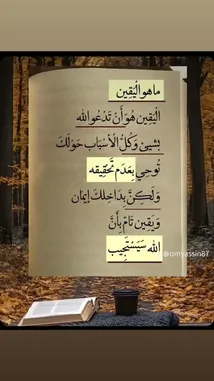 ماهو الْيَقِين
الْيَقِين هُوَ أَنْ تَدْعُو الله
بشيئ وَكُلُّ الْأسْبَاب حَوْلَكَ
تُوحِي بِعَدَم تَّحَقِيقه
وَلَكِنَّ بِدَاخِلكَ إِيمَان
وَيَقِين تَامّ بِأَنَّ
الله سَيَسْتَجِيب
@omyassin87